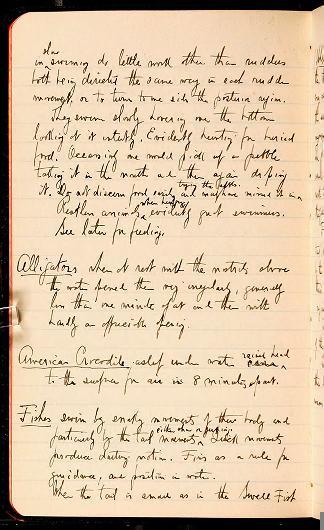 slow
in swimming do little work other than rudders
both being directed the same way in each sudden
movement, or to turn to one side the posterior region.
They swim slowly hovering over the bottom
looking at it intently. Evidently hunting for buried
food. Occasionally one would pick up a pebble
taking it in the mouth and then again dropping
it. Do not discern food easily and may have missed it in a
trying the pebbles.
Restless animals, evidently great swimmers.
when hungry
See later for feeding.
Alligators when at rest with the nostrils above
the water opened them very irregularly, generally
less than one minute apart and then with
hardly an appreciable
American Crocodile, asleep under water raising head
to the surface for air in 8 minutes apart.
Fishes swim by simple movements of their body and
particularly by the tail movements. Quick movements
either slow or
produce darting motion. Fins as a rule for
guidance, and position in water.
When the tail is small as in the Swell Fish